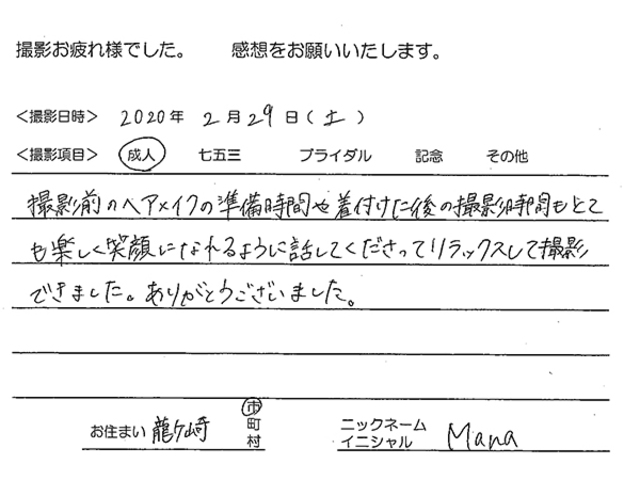 撮影お疲れ様でした。　　感想をお願いいたします。
＜撮影日時＞　2020年　2月29日(土)
＜撮影項目＞　成人　七五三　ブライダル　記念　その他
撮影前のヘアメイクの準備時間や着付けた後の撮影時間もとて
も楽しく笑顔になれるように話してくださってリラックスして撮影
できました。ありがとうございました。
お住まい 龍ケ崎 市町村　ニックネーム イニシャル Mana